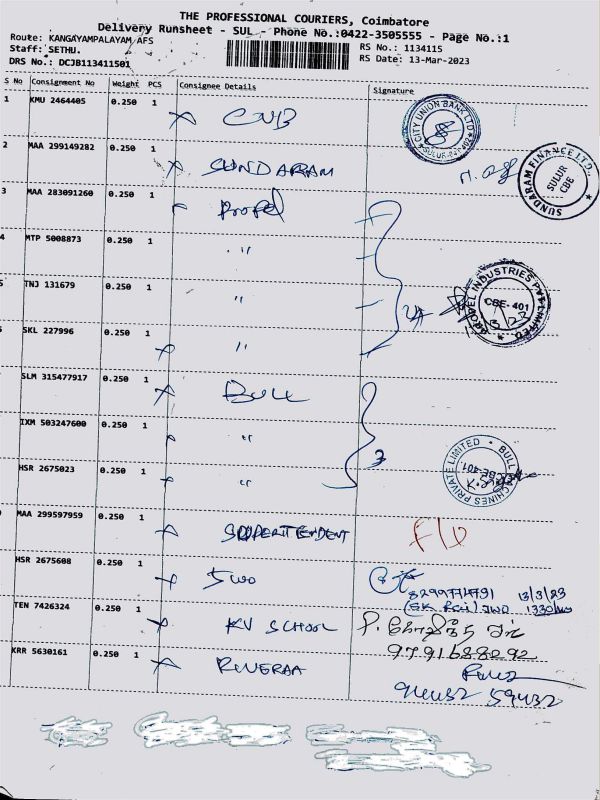 THE PROFESSIONAL COURIERS, Coimbatore
Delivery Runsheet - SUL - Phone No.:0422-3505555 - Page No.:1
Route: KANGAYAMPALAYAM AFS
RS No.: 1134115
Staff: SETHU.
RS Date: 13-Mar-2023
DRS No.: DCJB113411501
S No Consignment No Weight PCS Consignee Details Signature
1 KMU 2464405 0.250 1 CUB
CITY UNION BANK LTD
2 MAA 299149282 0.250 1 SUNDARAM
SUNDARAM FINANCE LTD., SULUR CBE
3 MAA 283091260 0.250 1 Propel
4 MTP 5008873 0.250 1 "
5 TNJ 131679 0.250 1 "
PROPEL INDUSTRIES PVT LIMITED CBE-401
SKL 227996 0.250 1 "
SLM 315477917 0.250 1 BULL
IXM 503247600 0.250 1 "
BULL MACHINES PRIVATE LIMITED
HSR 2675023 0.250 1 " 3
MAA 299597959 0.250 1
HSR 2675608 0.250 1 SWO
13/3/23
TEN 7426324 0.250 1 KV SCHOOL
9791688292
KRR 5630161 0.250 1 RIVERAA